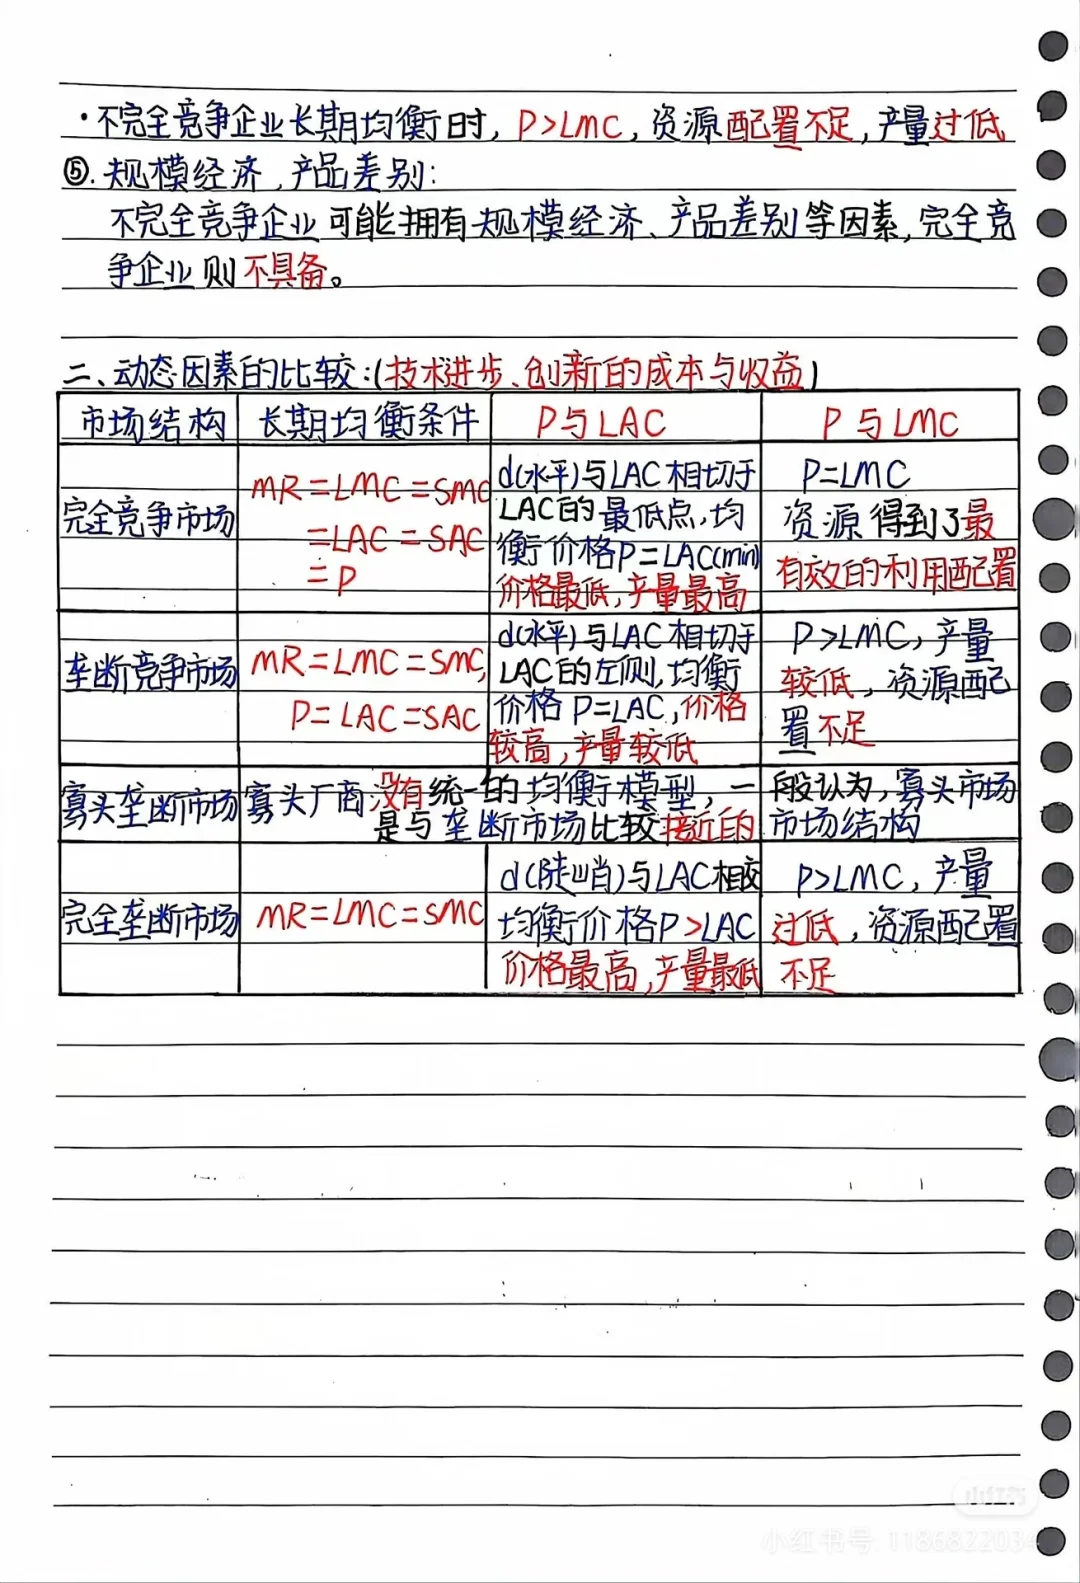 ·不完全竞争企业长期均衡时，P>LMC，资源配置不足，产量过低
⑤.规模经济，产品差别:
不完全竞争企业可能拥有规模经济、产品差别等因素，完全竞
争企业则不具备。
二、动态因素的比较:(技术进步、创新的成本与收益)
市场结构 长期均衡条件 P与LAC P与LMC
完全竞争市场
MR=LMC=SMC
=LAC=SAC
=P
d(水平)与LAC相切于
LAC的最低点，均
衡价格P=LAC(min)
价格最低，产量最高
P=LMC
资源得到了最
有效的利用配置
垄断竞争市场
MR=LMC=SMC,
P=LAC=SAC
d(水平)与LAC相切于
LAC的左侧，均衡
价格P=LAC，价格
较高，产量较低
P>LMC，产量
较低，资源配
置不足
寡头垄断市场
寡头厂商没有统一的均衡模型，一般认为，寡头市场
是与垄断市场比较接近的市场结构
完全垄断市场
MR=LMC=SMC
d(陡峭)与LAC相交
均衡价格P>LAC
价格最高，产量最低
P>LMC，产量
过低，资源配置
不足
小红书
小红书号: 1186822034